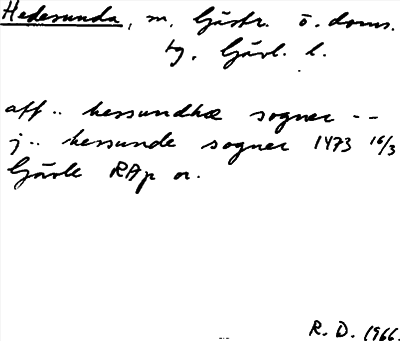 Hedesunda, sn. Gästr. ö. doms.
tg. Gävl. l.
aff .. hessundhæ sogner --
j .. hessunde sogner 1473 16/3
Gävle RAp or.
R. D. 1966.